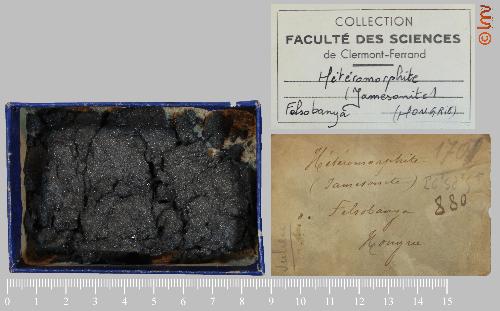 COLLECTION
FACULTÉ DES SCIENCES
de Clermont-Ferrand
Hétéromorphite
(Jamesonite)
Felsobanya (HONGRIE)
Hétéromorphite
(Jamesonite)
880
Felsobanya
Hongrie
0 1 2 3 4 5 6 7 8 9 10 11 12 13 14 15